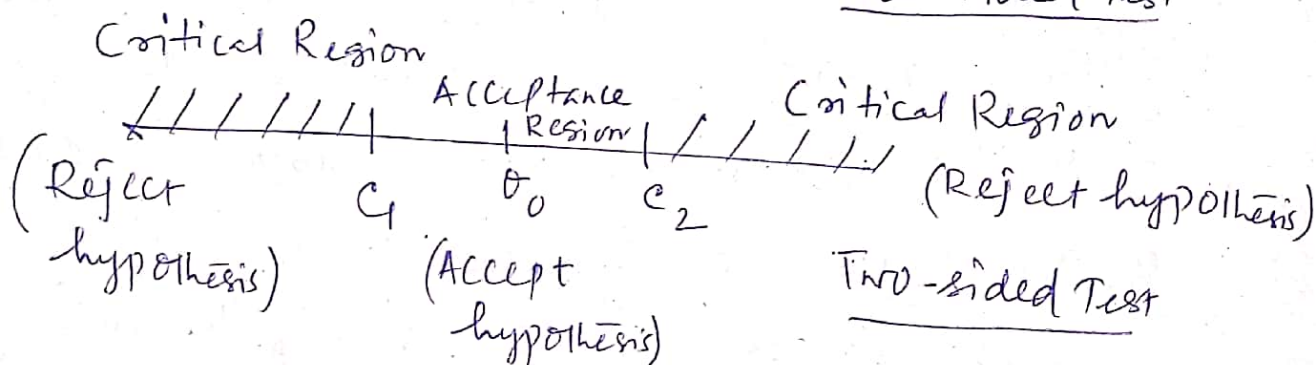 Test
Critical Region
Acceptance
Region
Critical Region
(Reject
hypothesis)
C1
θ0
C2
(Reject hypothesis)
(Accept
hypothesis)
Two-sided Test